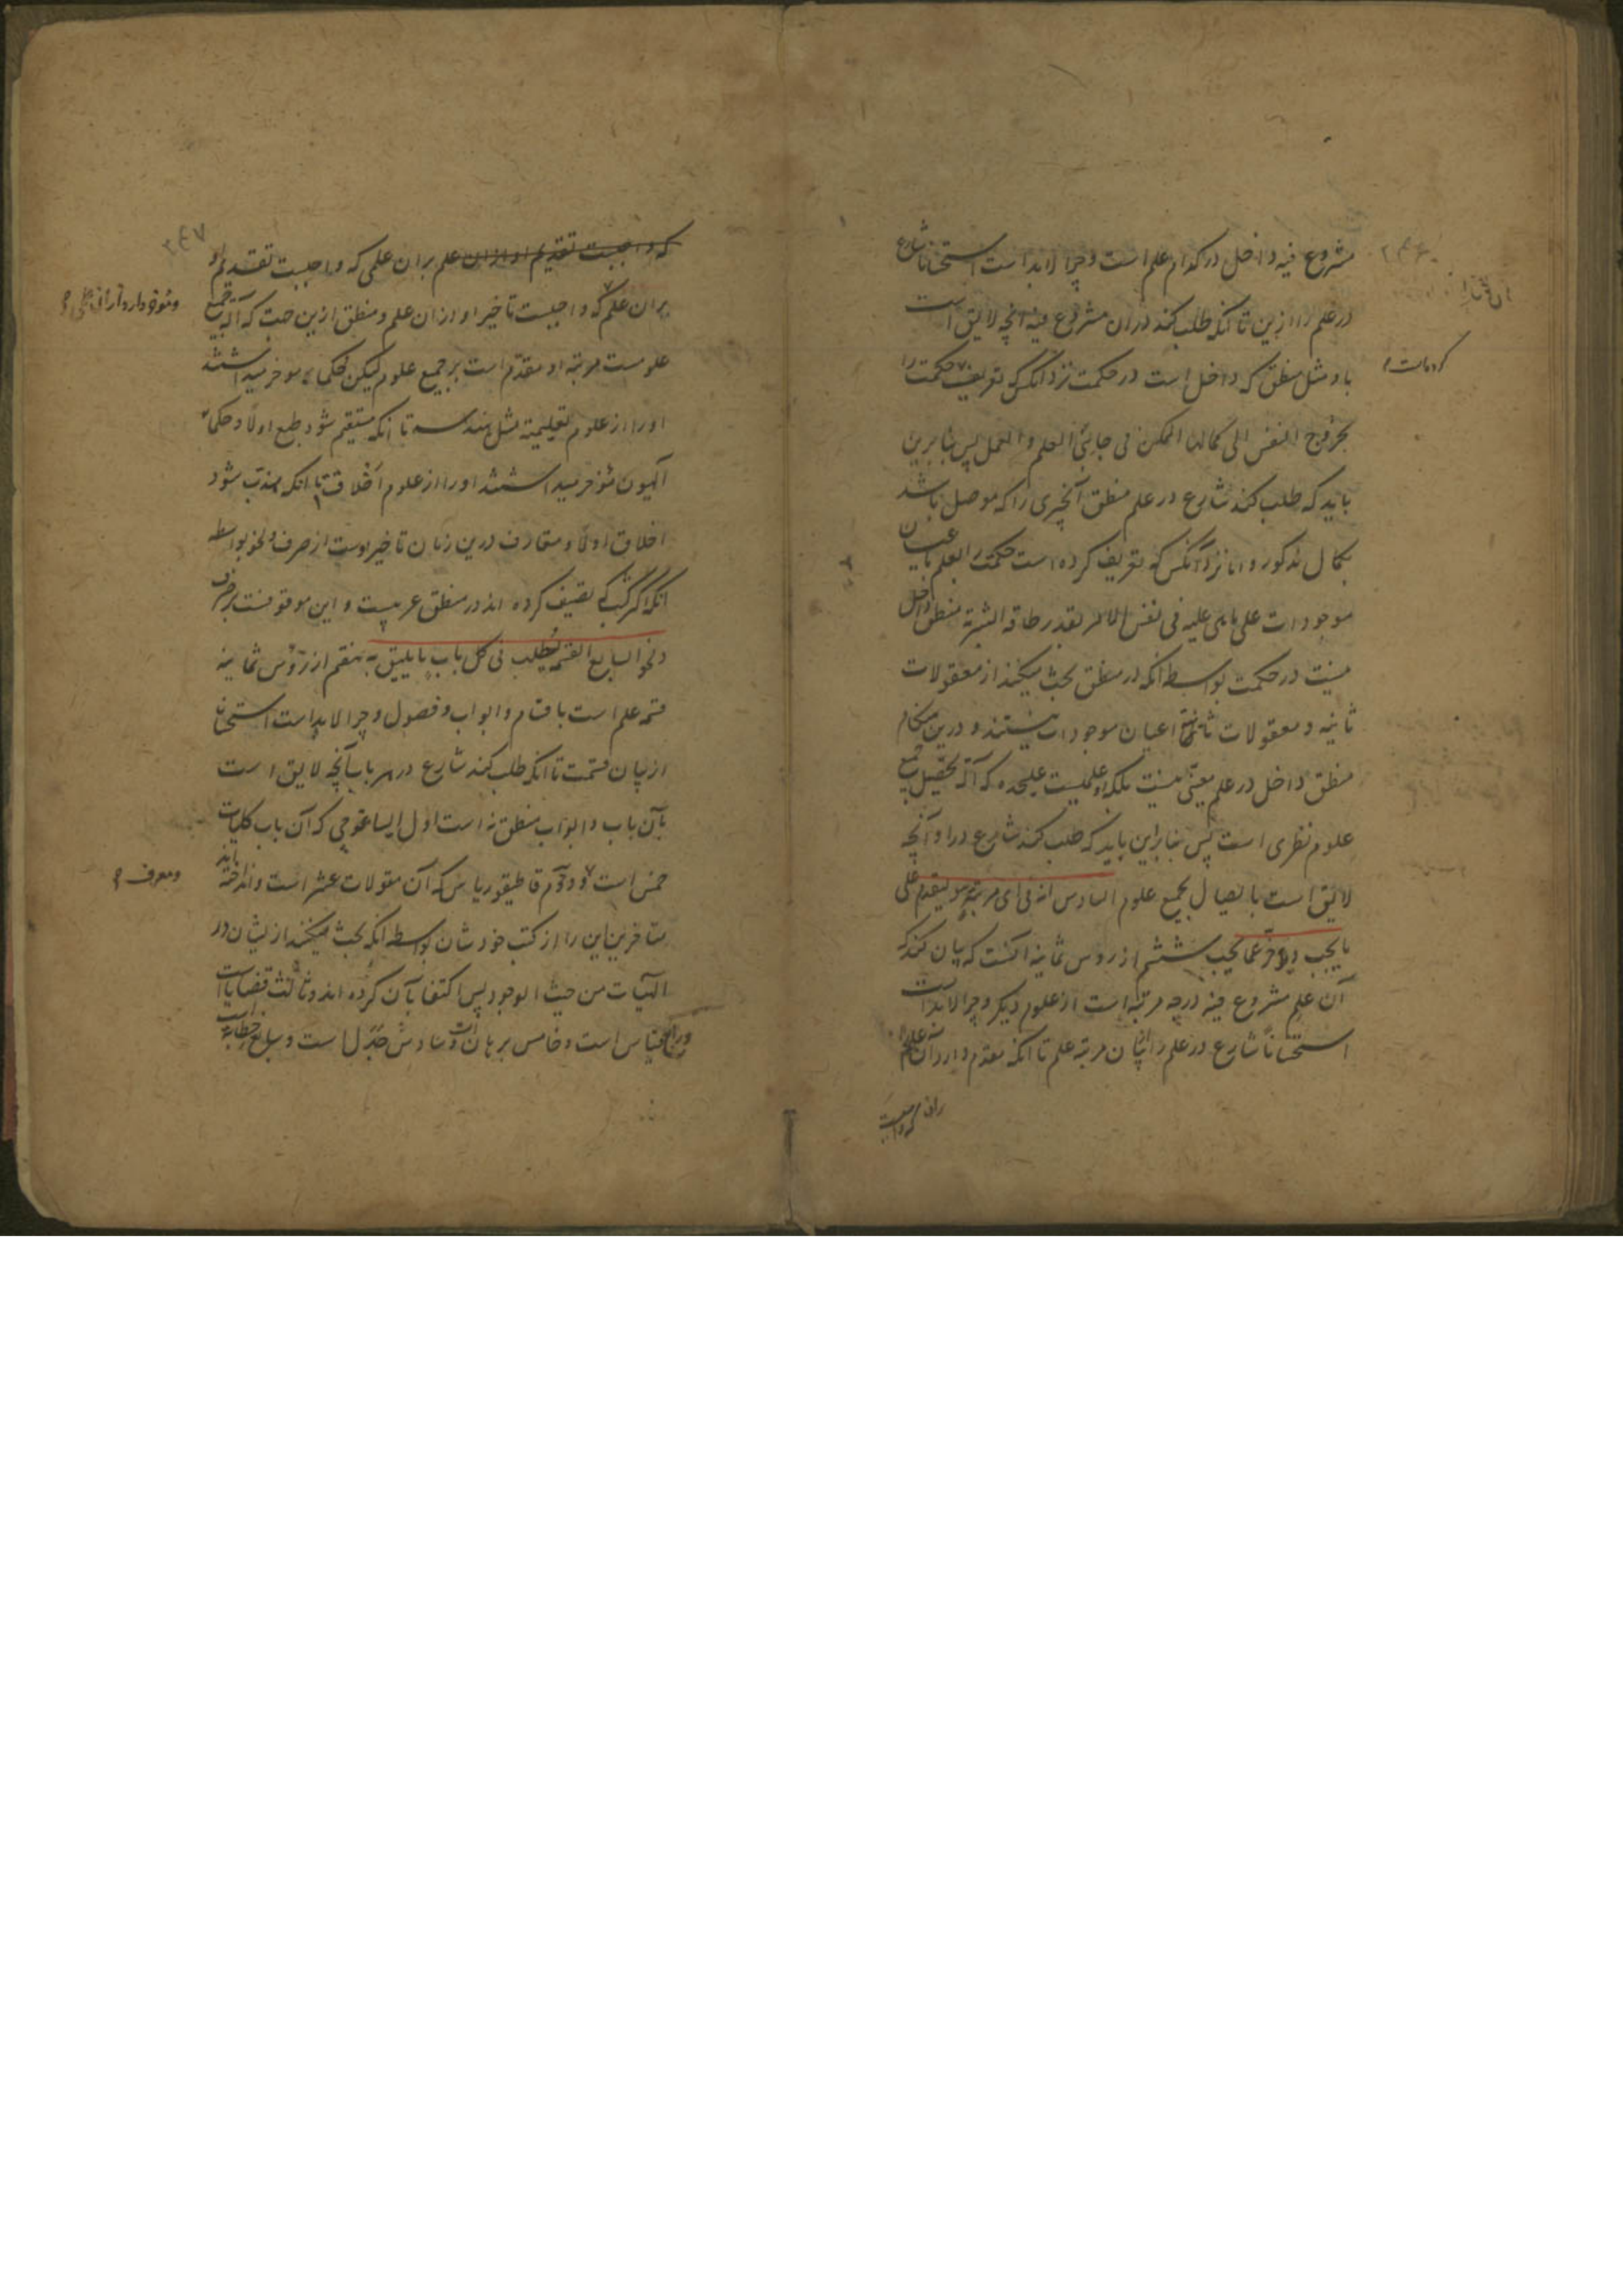 مشروع فیه داخل در کدام علم است و چرا لابد است استحسانا شارع
در علم را ازین تا آنکه طلب کند در آن مشروع فیه آنچه لایق است
باو مثل منطق که داخل است در حکمت نزد آنکس که تعریف حکمت را
بخروج النفس الی کمالها الممکن فی جانبی العلم و العمل پس بنابرین
باید که طلب کند شارع در علم منطق آنچیزی را که موصل باشد
بکمال مذکور و اما نزد آنکس که تعریف کرده است حکمت را بعلم باعیان
موجودات علی ما هی علیه فی نفس الامر بقدر طاقة البشریة منطق داخل
نیست در حکمت بواسطه آنکه در منطق بحث میکنند از معقولات
ثانیه و معقولات ثانیه اعیان موجودات نیستند و درین هنگام
منطق داخل در علم معینی نیست بلکه او علمیست علیحده که آلة تحصیل جمیع
علوم نظری است پس بنابراین باید که طلب کند شارع در او آنچه
لایق است با یصال بجمیع علوم السادس انه فی ای مرتبة هو لیقدم علی
ما یجب و یؤخر عما یجب ششم از روس ثمانیه آنست که بیان کند که
آن علم مشروع فیه در چه مرتبه است از علوم دیگر و چرا لابد است
استحسانا شارع در علم را از بیان مرتبه علم تا آنکه مقدم دارد آن علم را
که واجبست
کرده است
۲۴۶
۲۴۷
که واجبست تقدیم او از ان علم بران علمی که واجبست تقدیم او
بران علم که واجبست تاخیر او از ان علم و منطق ازین حیث که آلة جمیع
علومست مرتبه او مقدم است بر جمیع علوم لیکن حکماء موخر میداشتند
او را از علوم تعلیمیة مثل هندسه تا آنکه مستقیم شود طبع اولا و حکماء
آلهیون مؤخر میداشتند او را از علوم اخلاق تا آنکه مهذب شود
اخلاق اولا و متعارف درین زمان تاخیر اوست از صرف و نحو بواسطه
آنکه اکثر کتب که تصنیف کرده اند در منطق عربیست و این موقوفست بر صرف
و نحو السابع القسمة لیطلب فی کل باب ما یلیق به هفتم از رؤس ثمانیه
قسمة علم است باقسام و ابواب و فصول و چرا لابد است استحسانا
از بیان قسمت تا آنکه طلب کند شارع در هر باب آنچه لایق است
بآن باب و ابواب منطق نه است اول ایساغوجی که آن باب کلیات
خمس است و دوم قاطیقوریاس که آن مقولات عشر است و انداخته اند
متاخرین این را از کتب خودشان بواسطه آنکه بحث میکنند از ایشان در
الهیات من حیث الوجود پس اکتفا بآن کرده اند و ثالث قضایا است
و رابع قیاس است و خامس برهان است و سادس جدل است و سابع خطابة است
و معرف